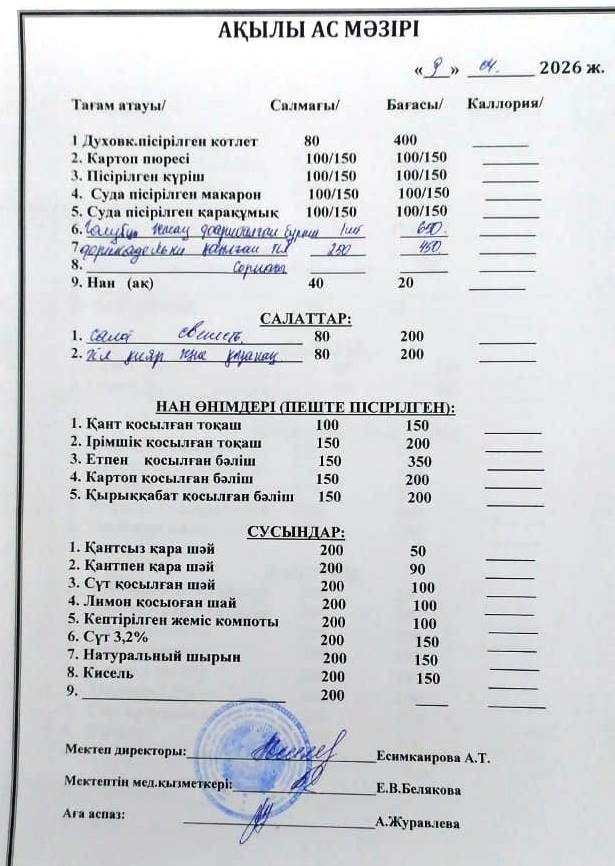 АҚЫЛЫ АС МӘЗІРІ
«9» 04. 2026 ж.
Тағам атауы/ Салмағы/ Бағасы/ Каллория/
1 Духовк.пісірілген котлет 80 400
2. Картоп пюресі 100/150 100/150
3. Пісірілген күріш 100/150 100/150
4. Суда пісірілген макарон 100/150 100/150
5. Суда пісірілген қарақұмық 100/150 100/150
6. бұрыш 1шт 600.
7 250 450.
8.
9. Нан (ақ) 40 20
САЛАТТАР:
1. салат свежесть 80 200
2. қияр және қызанақ 80 200
НАН ӨНІМДЕРІ (ПЕШТЕ ПІСІРІЛГЕН):
1. Қант қосылған тоқаш 100 150
2. Ірімшік қосылған тоқаш 150 200
3. Етпен қосылған бәліш 150 350
4. Картоп қосылған бәліш 150 200
5. Қырыққабат қосылған бәліш 150 200
СУСЫНДАР:
1. Қантсыз қара шәй 200 50
2. Қантпен қара шәй 200 90
3. Сүт қосылған шәй 200 100
4. Лимон қосыоған шай 200 100
5. Кептірілген жеміс компоты 200 100
6. Сүт 3,2% 200 150
7. Натуральный шырын 200 150
8. Кисель 200 150
9. 200
Мектеп директоры: Есимкаирова А.Т.
Мектептің мед.қызметкері: Е.В.Белякова
Аға аспаз: А.Журавлева